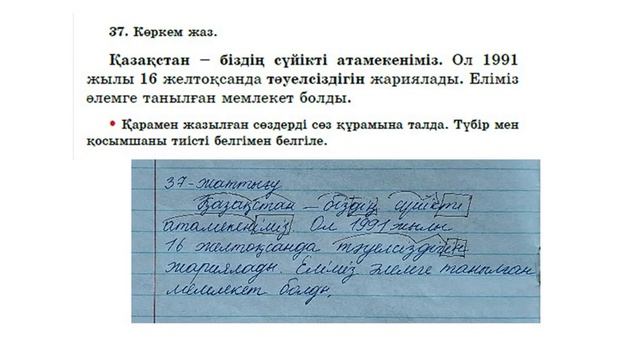 37. Көркем жаз.
Қазақстан – біздің сүйікті атамекеніміз. Ол 1991
жылы 16 желтоқсанда тәуелсіздігін жариялады. Еліміз
әлемге танылған мемлекет болды.
• Қарамен жазылған сөздерді сөз құрамына талда. Түбір мен
қосымшаны тиісті белгімен белгіле.
37-жаттығу
Қазақстан – біздің сүйікті
атамекеніміз Ол 1991 жылы
16 желтоқсанда тәуелсіздігін
жариялады. Еліміз әлемге танылған
мемлекет болды.